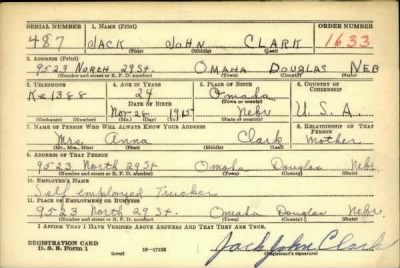 SERIAL NUMBER 1. NAME (Print) ORDER NUMBER
487 JACK JOHN CLARK 1633
(First) (Middle) (Last)
2. ADDRESS (Print)
9523 NORTH 29 St. OMAHA DOUGLAS NEB
(Number and street or R. F. D. number) (Town) (County) (State)
3. TELEPHONE 4. AGE IN YEARS 5. PLACE OF BIRTH 6. COUNTRY OF CITIZENSHIP
Ke 1388 24 Omaha
DATE OF BIRTH (Town or county)
Nov 28 1915 Nebr U.S.A.
(Exchange) (Number) (Mo.) (Day) (Yr.) (State or country)
7. NAME OF PERSON WHO WILL ALWAYS KNOW YOUR ADDRESS 8. RELATIONSHIP OF THAT PERSON
Mrs. Anna Clark Mother
(Mr., Mrs., Miss) (First) (Middle) (Last)
9. ADDRESS OF THAT PERSON
9523 North 29 St Omaha Douglas Nebr.
(Number and street or R. F. D. number) (Town) (County) (State)
10. EMPLOYER'S NAME
Self employed Trucker
11. PLACE OF EMPLOYMENT OR BUSINESS
9523 North 29 St. Omaha Douglas Nebr.
(Number and street or R. F. D. number) (Town) (County) (State)
I AFFIRM THAT I HAVE VERIFIED ABOVE ANSWERS AND THAT THEY ARE TRUE.
REGISTRATION CARD
D. S. S. Form 1 (over) 16—17105 Jack John Clark
(Registrant's signature)